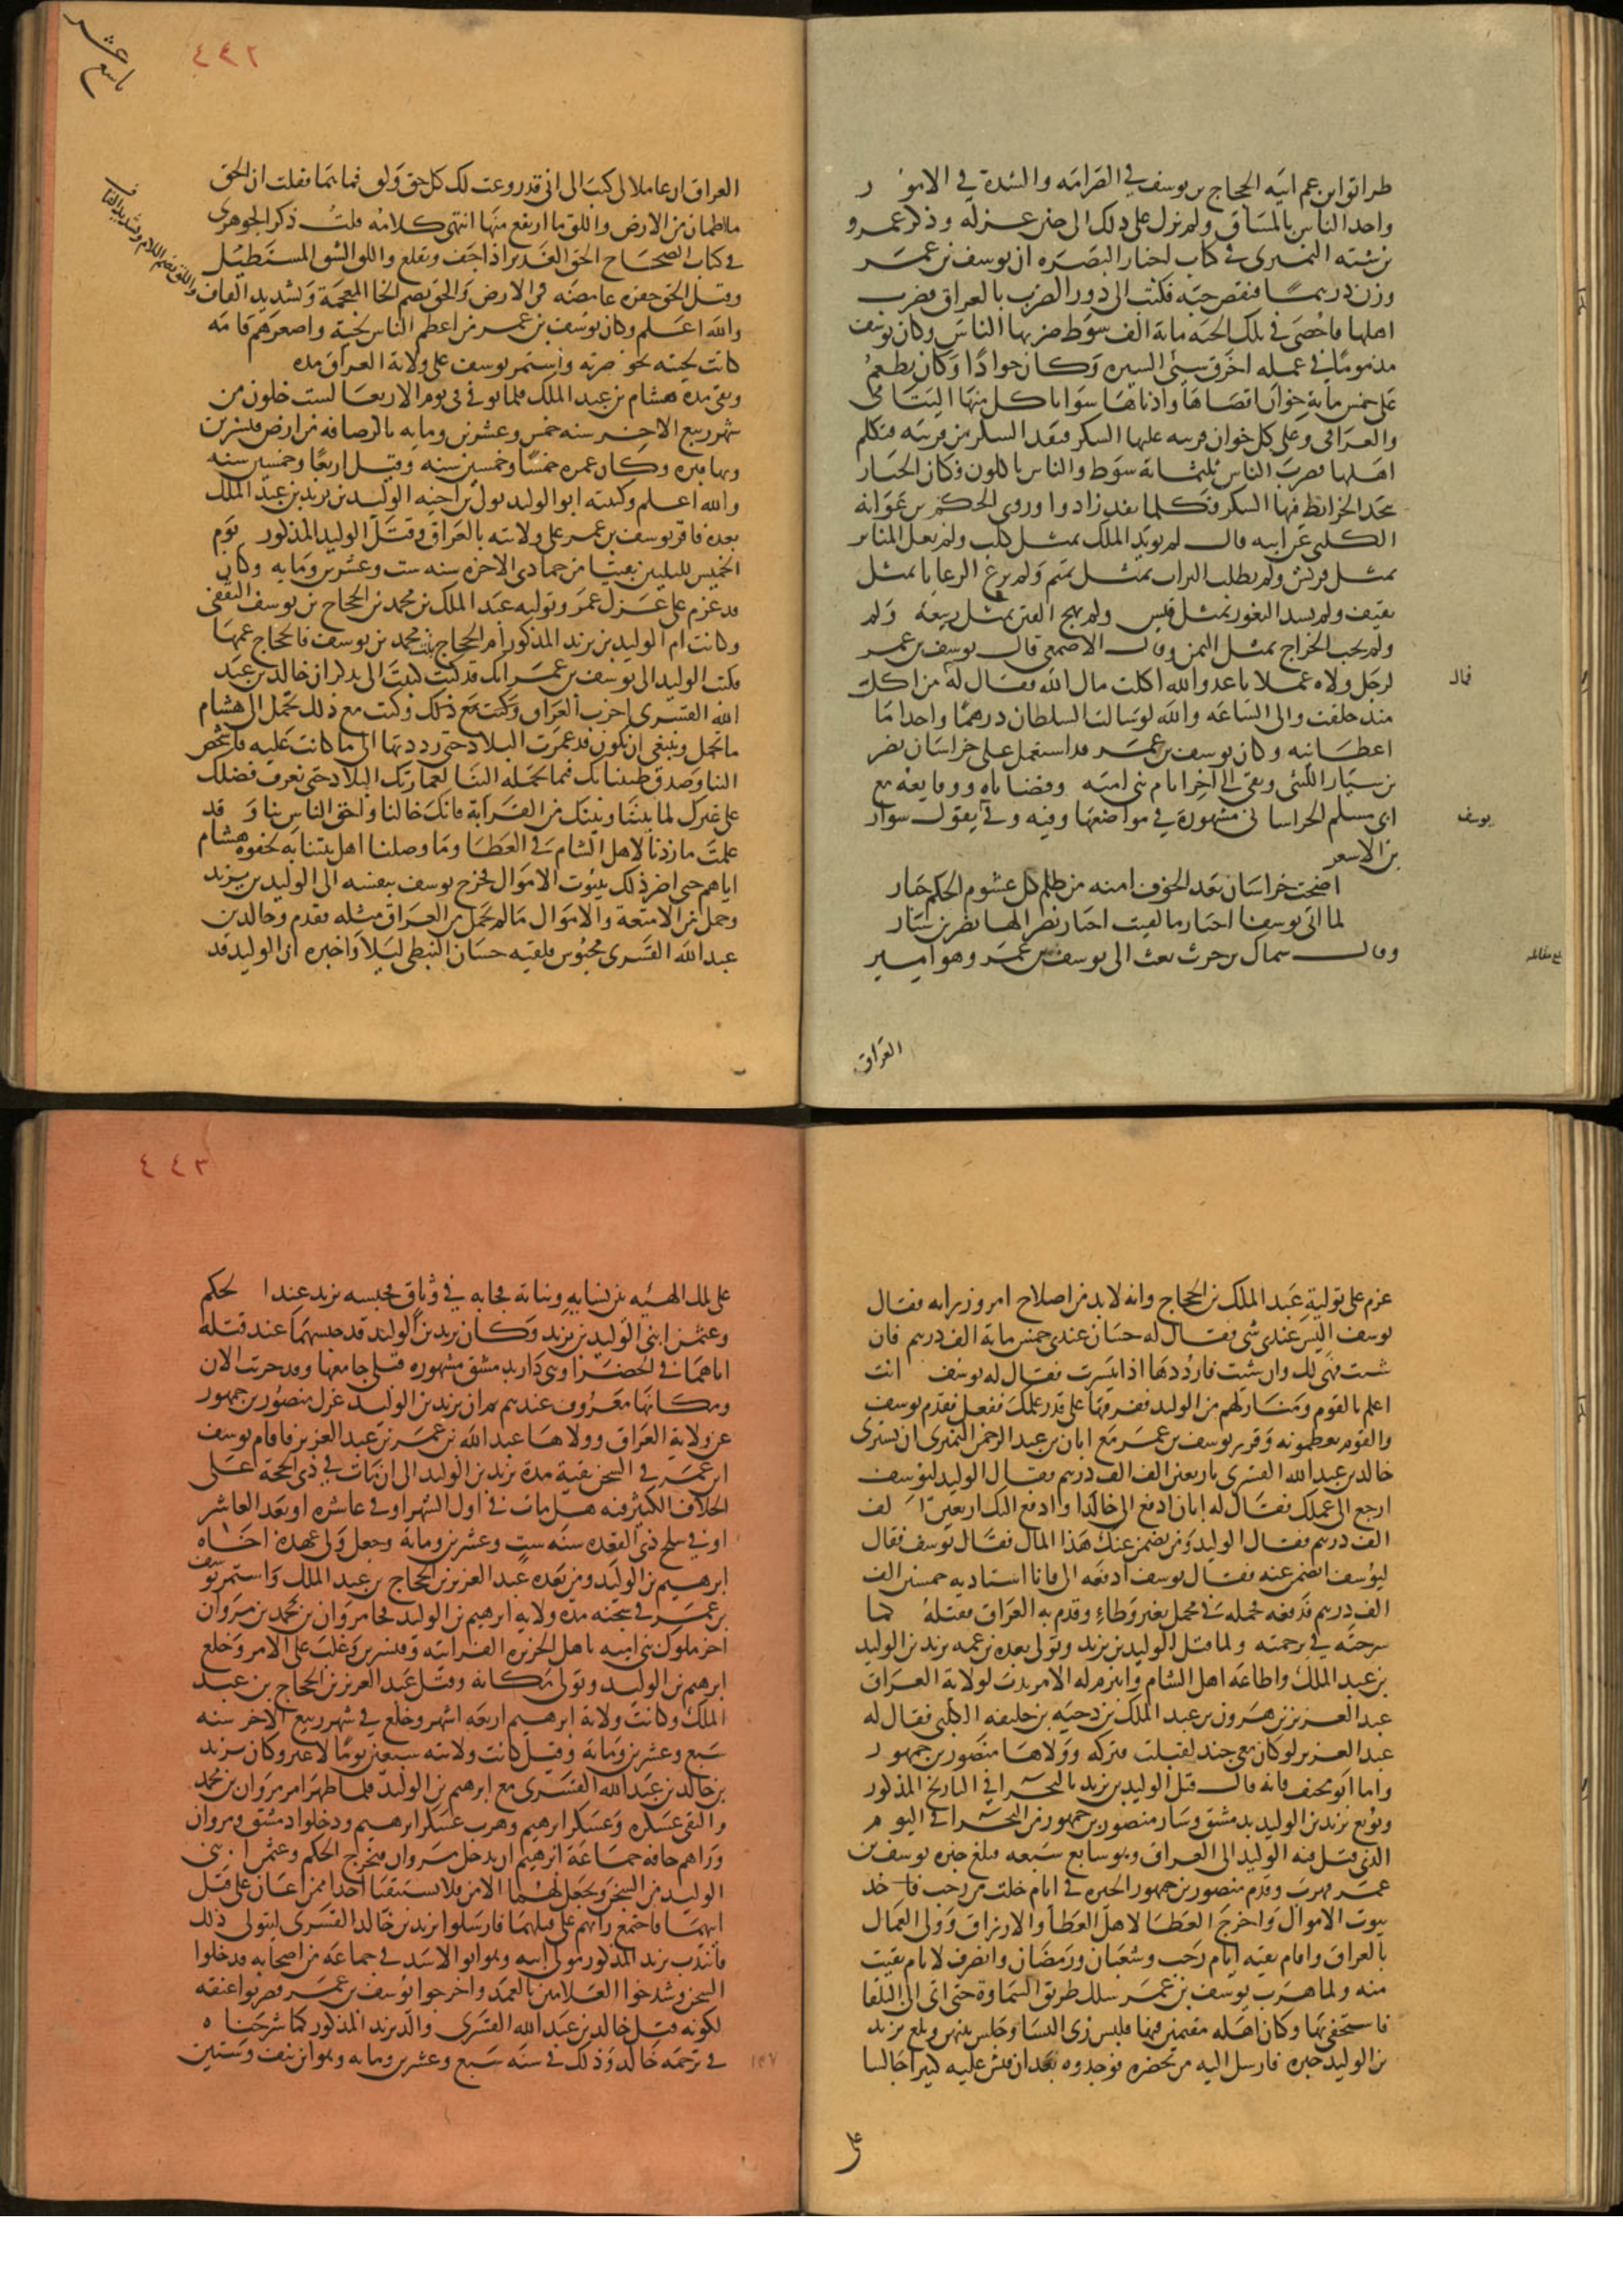 طرائق ابن عم ابيه الحجاج بن يوسف في الصرامه والشدة في الامور
واخذ الناس بالمشاق ولم يزل على ذلك الى حين عزله وذكر عمرو
بن شبه النميري في كتاب اخبار البصره ان يوسف بن عمر
وزن درهما فنقص حبه فكتب الى دور الضرب بالعراق فضرب
اهلها فاحصى في تلك الحبه مائة الف سوط ضربها الناس وكان يوسف
مذموما في عمله اخرق سيئ السيره وكان جوادا وكان يطعم
على خمس مائة خوان اقصاها وادناها سوا ياكل منها الشامي
والعراقي وعلى كل خوان فرنيه عليها السكر فنفد السكر من فرنيه فتكلم
اهلها فضرب الخباز ثلثمائة سوط والناس ياكلون فكان الخباز
يتخذ الخرائط فيها السكر فكلما نفد زادوا وروى الحكم بن عوانه
الكلبي عن ابيه قال لم يؤيد الملك بمثل كلب ولم تعل المنابر
بمثل قريش ولم تطلب التراث بمثل تميم ولم ترع الرعايا بمثل
ثقيف ولم تسد الثغور بمثل قيس ولم تهج الفتن بمثل ربيعة ولم
ولم يجب الخراج بمثل اليمن وقال الاصمعي قال يوسف بن عمر
لرجل ولاه عملا يا عدو الله اكلت مال الله فقال له من اكلت
قال
منذ خلقت والى الساعه والله لو سالت السلطان درهما واحدا ما
اعطانيه وكان يوسف بن عمر قد استعمل على خراسان نصر
بن سيار الليثي وبقي الى اخر ايام بني اميه وقضاياه ووقايعه مع
ابي مسلم الخراساني مشهورة في مواضعها وفيه وفي يقول سوار
يوسف
بن الاشعر
اضحت خراسان بعد الخوف امنه من ظلم كل غشوم الحكم جبار
لما اتى يوسفا اخبار ما لقيت اختار نصرا لها نصر بن سيار
وقال سماك بن حرب بعث الى يوسف بن عمر وهو امير
بلغ مقابله
العراق
٤٤٢
تاسع عشر
العراق ان عاملا لي كتب الى اني قد زرعت لك كل خق ولق فما هما فقلت ان الخق
ما اطمان من الارض واللق ما ارتفع منها انتهى كلامه قلت ذكر الجوهري
في كتاب الصحاح الخق الغدير اذا جف وتقلع واللق الشق المستطيل
وقيل الخق حفره غامضه في الارض والخق بضم الخا المعجمة وتشديد القاف
واللق بضم اللام وتشديد القاف
والله اعلم وكان يوسف بن عمر من اعظم الناس لحية واصغرهم قامه
كانت لحيته تجوز سرته واستمر يوسف على ولاية العراق مده
وبقي مدة هشام بن عبد الملك فلما توفي في يوم الاربعا لست خلون من
شهر ربيع الاخر سنه خمس وعشرين ومايه بالرصافه من ارض قنسرين
وبها قبره وكان عمره خمسا وخمسين سنه وقيل اربعا وخمسين سنه
والله اعلم وكنيته ابو الوليد تولى بن اخيه الوليد بن يزيد بن عبد الملك
بعده فاقر يوسف بن عمر على ولايته بالعراق وقتل الوليد المذكور يوم
الخميس لليلتين بقيتا من جمادى الاخره سنه ست وعشرين ومايه وكان
قد عزم على عزل عمر وتوليه عبد الملك بن محمد بن الحجاج بن يوسف الثقفي
وكانت ام الوليد بن يزيد المذكور ام الحجاج بنت محمد بن يوسف فالحجاج عمها
فكتب الوليد الى يوسف بن عمر انك قد كنت كتبت الى تذكر ان خالد بن عبد
الله القسري اخرب العراق وكنت مع ذلك تحمل الى هشام
ما تحمل وينبغي ان تكون قد عمرت البلاد حتى رددتها الى ما كانت عليه فاشخص
الينا وصدق ظننا بك فيما تحمله الينا لعمارتك البلاد حتى نعرف فضلك
على غيرك لما بيننا وبينك من القرابة فانك خالنا واحق الناس بنا وقد
علمت ما زدنا لاهل الشام في العطا وما وصلنا اهل بيتنا به لجفوة هشام
اياهم حتى اضر ذلك ببيوت الاموال فخرج يوسف بنفسه الى الوليد بن يزيد
وحمل من الامتعة والاموال ما لم يحمل من العراق مثله فقدم وخالد بن
عبد الله القسري محبوس فلقيه حسان النبطي ليلا واخبره ان الوليد قد
عزم على تولية عبد الملك بن الحجاج وانه لا بد من اصلاح امر وزرائه فقال
يوسف ليس عندي شي فقال له حسان عندي خمس مائة الف درهم فان
شئت فهي لك وان شئت فارددها اذا تيسرت فقال له يوسف انت
اعلم بالقوم ومنازلهم من الوليد ففرقها على قدر علمك ففعل فقدم يوسف
والقوم يعظمونه وقرر يوسف بن عمر مع ابان بن عبد الرحمن النميري ان يشتري
خالد بن عبد الله القسري باربعين الف الف درهم فقال الوليد ليوسف
ارجع الى عملك فقال له ابان ادفع الى خالدا وادفع اليك اربعين الف
الف درهم فقال الوليد ومن يضمن عنك هذا المال فقال يوسف فقال
ليوسف اتضمن عنه فقال يوسف ادفعه الي فانا استاديه خمسين الف
الف درهم فدفعه فحمله في محمل بغير وطاء وقدم به العراق فقتله كما
شرحته في ترجمته ولما قتل الوليد بن يزيد وتولى بعده بن عمه يزيد بن الوليد
بن عبد الملك واطاعه اهل الشام وانبرم له الامر ندب لولاية العراق
عبد العزيز بن هرون بن عبد الملك بن دحيه بن خليفه الكلبي فقال له
عبد العزيز لو كان معي جند لقبلت فتركه وولاها منصور بن جمهور
واما ابو مخنف فانه قال قتل الوليد بن يزيد بالبخراء في التاريخ المذكور
وبويع يزيد بن الوليد بدمشق وسار منصور بن جمهور من البخراء في اليوم
الذي قتل فيه الوليد الى العراق وهو سابع سبعه فبلغ خبره يوسف بن
عمر فهرب وقدم منصور بن جمهور الحيره في ايام خلت من رجب فاخذ
بيوت الاموال واخرج العطا لاهل العطا والارزاق وولى العمال
بالعراق واقام بقيه ايام رجب وشعبان ورمضان وانصرف لايام بقيت
منه ولما هرب يوسف بن عمر سلك طريق السماوة حتى اتى الى البلقا
فاستخفى بها وكان اهله مقيمين فيها فلبس زي النسا وجلس بينهن وبلغ يزيد
بن الوليد خبره فارسل اليه من يحضره فوجدوه بعد ان فتش عليه كثيرا جالسا
على
٤٤٣
على تلك الهيئه بين نسايه وبناته فجا به في وثاق فحبسه يزيد عند الحكم
وعثمن ابني الوليد بن يزيد وكان يزيد بن الوليد قد حبسهما عند قتله
اباهما في الخضرا وهي دار بدمشق مشهوره قبلي جامعها وقد خربت الان
ومكانها معروف عندهم ثم ان يزيد بن الوليد عزل منصور بن جمهور
عن ولاية العراق وولاها عبد الله بن عمر بن عبد العزيز فاقام يوسف
ابن عمر في السجن بقية مدة يزيد بن الوليد الى ان مات في ذي الحجة على
الخلاف الكثير فيه هل مات في اول الشهر او في عاشره او بعد العاشر
او في سلخ ذي القعده سنه ست وعشرين ومائة وجعل ولي عهده اخاه
ابرهيم بن الوليد ومن بعده عبد العزيز بن الحجاج بن عبد الملك واستمر يوسف
بن عمر في سجنه مدة ولايه ابرهيم بن الوليد فجا مروان بن محمد بن مروان
اخر ملوك بني اميه باهل الجزيره الفراتيه وقنسرين وغلب على الامر وخلع
ابرهيم بن الوليد وتولى مكانه وقتل عبد العزيز بن الحجاج بن عبد
الملك وكانت ولاية ابرهيم اربعه اشهر وخلع في شهر ربيع الاخر سنه
سبع وعشرين ومائة وقيل كانت ولايته سبعين يوما لا غير وكان يزيد
بن خالد بن عبد الله القسري مع ابرهيم بن الوليد فلما ظهر امر مروان بن محمد
والتقى عسكره وعسكر ابرهيم وهرب عسكر ابرهيم ودخلوا دمشق ومروان
وراهم خافه جماعة ابرهيم ان يدخل مروان فيخرج الحكم وعثمن ابني
الوليد من السجن ويجعل لهما الامر فلا يستبقيا احدا ممن اعان على قتل
ابيهما فاجتمع رايهم على قتلهما فارسلوا يزيد بن خالد القسري ليتولى ذلك
فانتدب يزيد المذكور مولى ابيه وهو ابو الاسد في جماعه من اصحابه فدخلوا
السجن وشدخوا الغلامين بالعمد واخرجوا يوسف بن عمر فضربوا عنقه
لكونه قتل خالد بن عبد الله القسري والد يزيد المذكور كما شرحناه
في ترجمه خالد وذلك في سنه سبع وعشرين ومايه وهو ابن نيف وستين